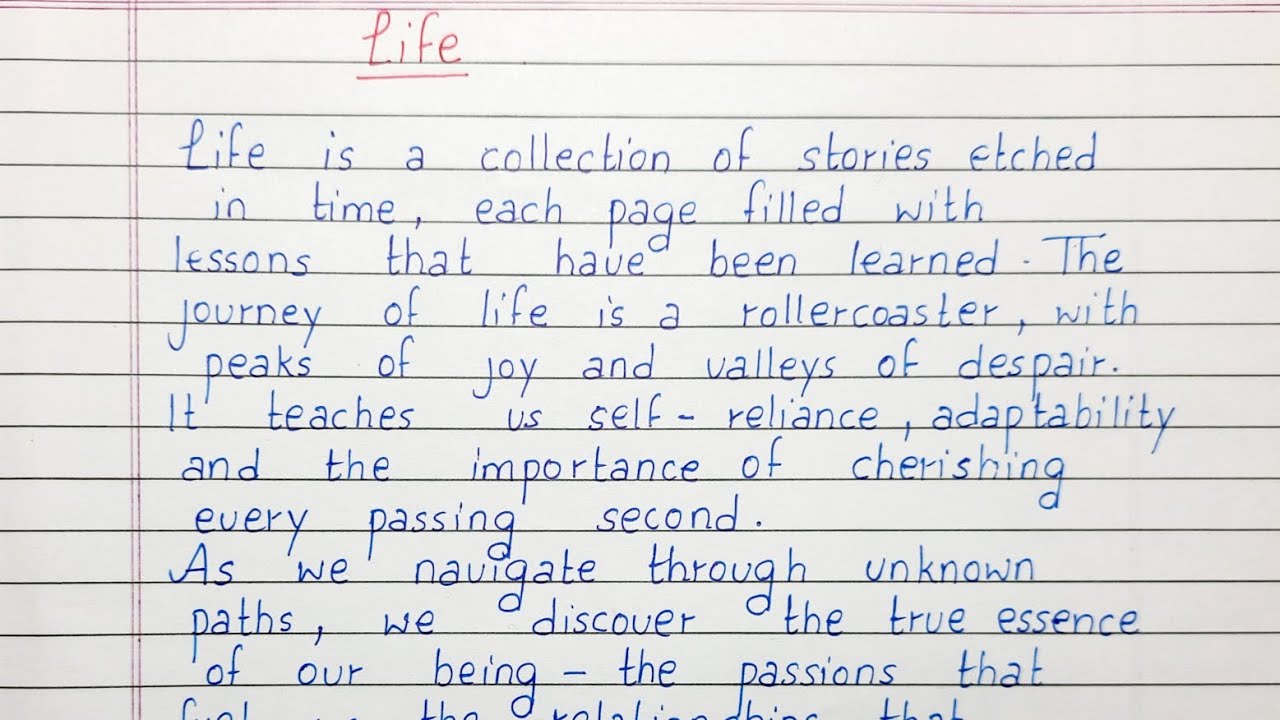 Life
Life is a collection of stories etched
in time, each page filled with
lessons that have been learned. The
journey of life is a rollercoaster, with
peaks of joy and valleys of despair.
It teaches us self-reliance, adaptability
and the importance of cherishing
every passing second.
As we navigate through unknown
paths, we discover the true essence
of our being - the passions that
fuel us, the relationships that